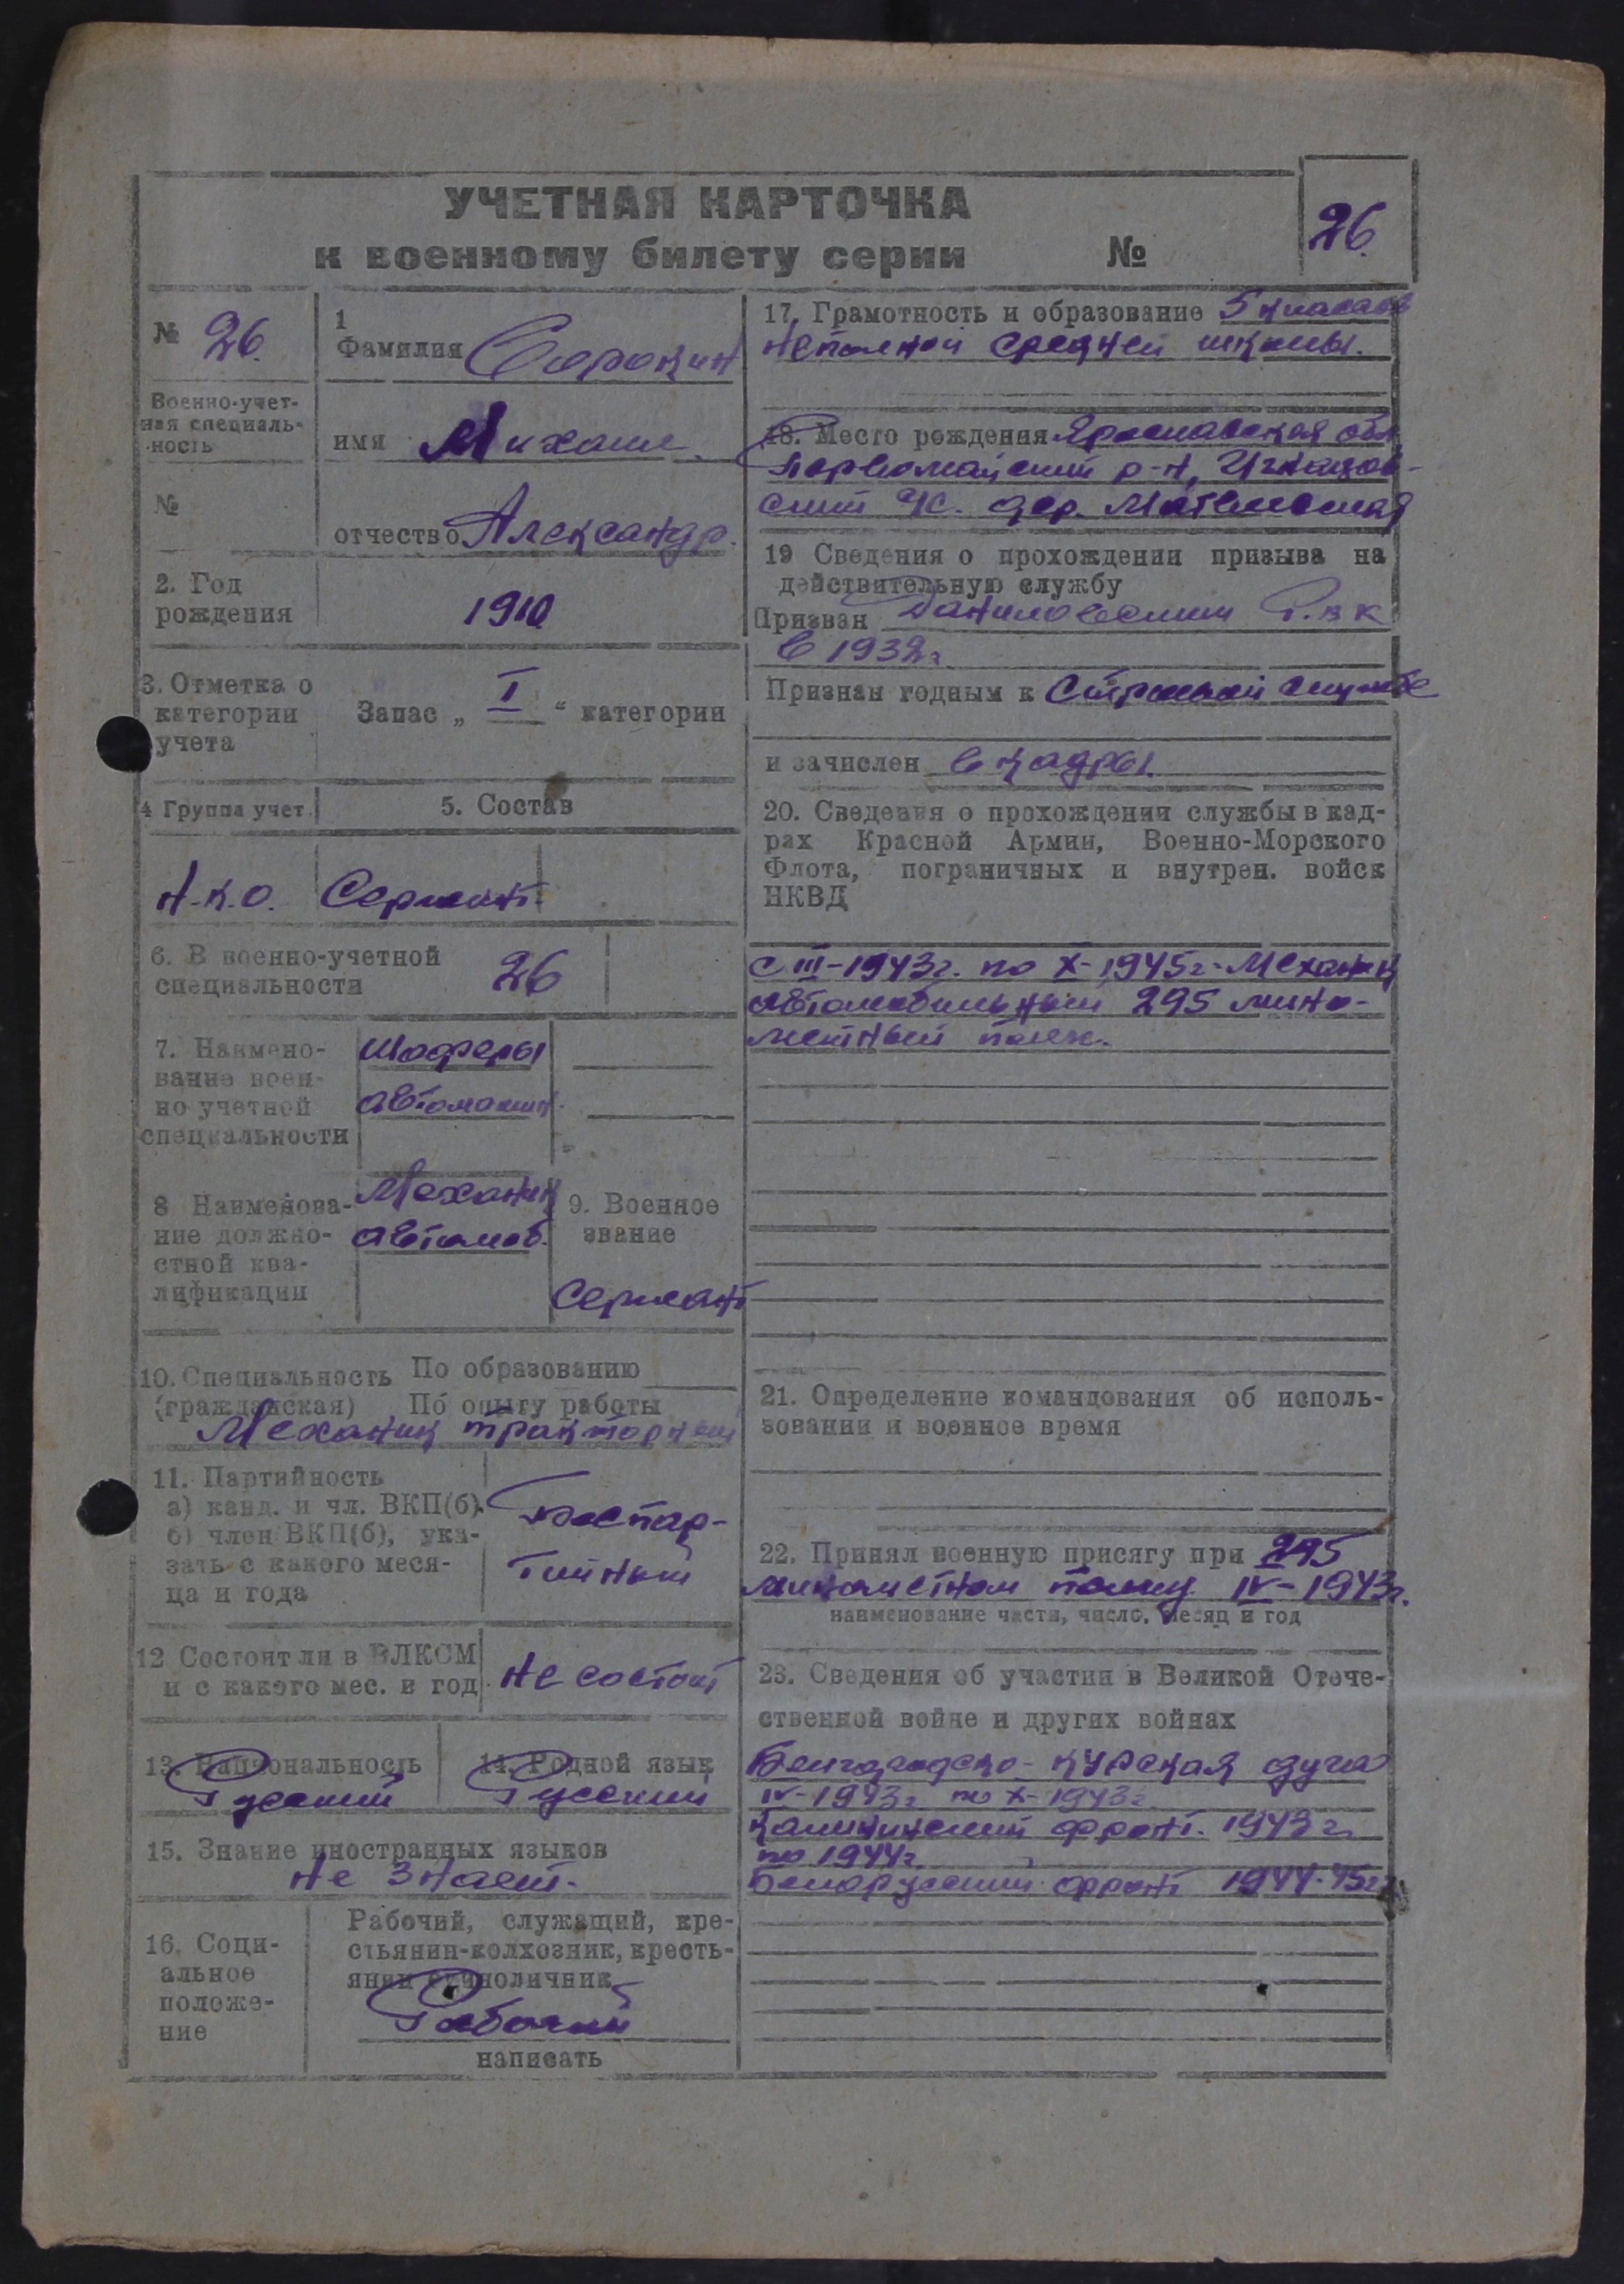 УЧЕТНАЯ КАРТОЧКА
к военному билету серии №
26.
№ 26.
1
Фамилия Сорокин
Военно-учет-
ная специаль-
ность
имя Михаил.
№
отчество Александр.
2. Год
рождения
1910
3. Отметка о
категории
учета
Запас „ I “ категории
4 Группа учет.
5. Состав
Н.К.О. Сержант.
6. В военно-учетной
специальности
26
7. Наимено-
вание воен-
но учетной
специальности
Шоферы
автомашин.
8 Наименова-
ние должно-
стной ква-
лификации
Механик
автомоб.
9. Военное
звание
Сержант
10. Специальность По образованию
(гражданская) По опыту работы
Механик тракторный
11. Партийность
а) канд. и чл. ВКП(б).
б) член ВКП(б), ука-
зать с какого меся-
ца и года
Беспар-
тийный
12 Состоит ли в ВЛКСМ
и с какого мес. и год
Не состоит
13. Национальность
Русский
14. Родной язык
Русский
15. Знание иностранных языков
Не знает.
16. Соци-
альное
положе-
ние
Рабочий, служащий, кре-
стьянин-колхозник, кресть-
янин единоличник
Рабочий
написать
17. Грамотность и образование 5 классов
неполной средней школы.
18. Место рождения Ярославская обл.
Первомайский р-н,
ский с/с. дер.
19 Сведения о прохождении призыва на
действительную службу
Призван Даниловским Р.В.К
в 1932г
Признан годным к Строевой службе
и зачислен в кадры.
20. Сведения о прохождении службы в кад-
рах Красной Армии, Военно-Морского
Флота, пограничных и внутрен. войск
НКВД
С III-1943г. по X-1945г. Механик
автомобильный, 295 мино-
метный полк.
21. Определение командования об исполь-
зовании и военное время
22. Принял военную присягу при 295
минометном полку IV-1943г.
наименование части, число, месяц и год
23. Сведения об участии в Великой Отече-
ственной войне и других войнах
Белгородско-Курская дуга
IV-1943г по X-1943г
Калининский фронт. 1943г.
по 1944г.
Белорусский фронт 1944-45гг